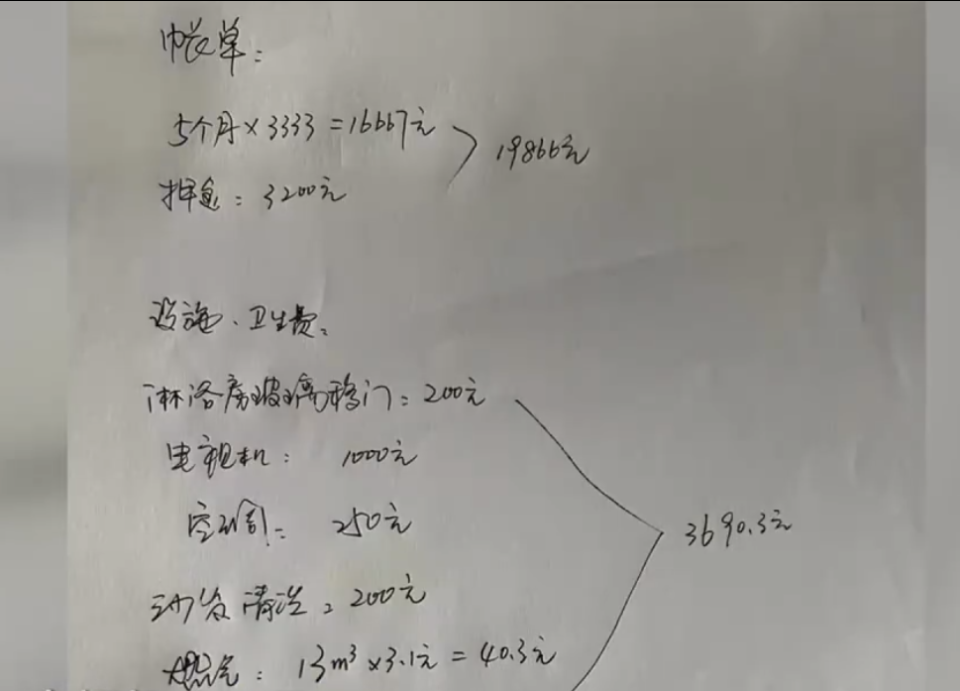 帐单:
5个月×3333=16667元
19866元
押金:3200元
设施、卫生费:
淋浴房玻璃移门:200元
电视机: 1000元
空调: 250元
3690.3元
沙发清洗:200元
燃气: 13m³×3.1元=40.3元